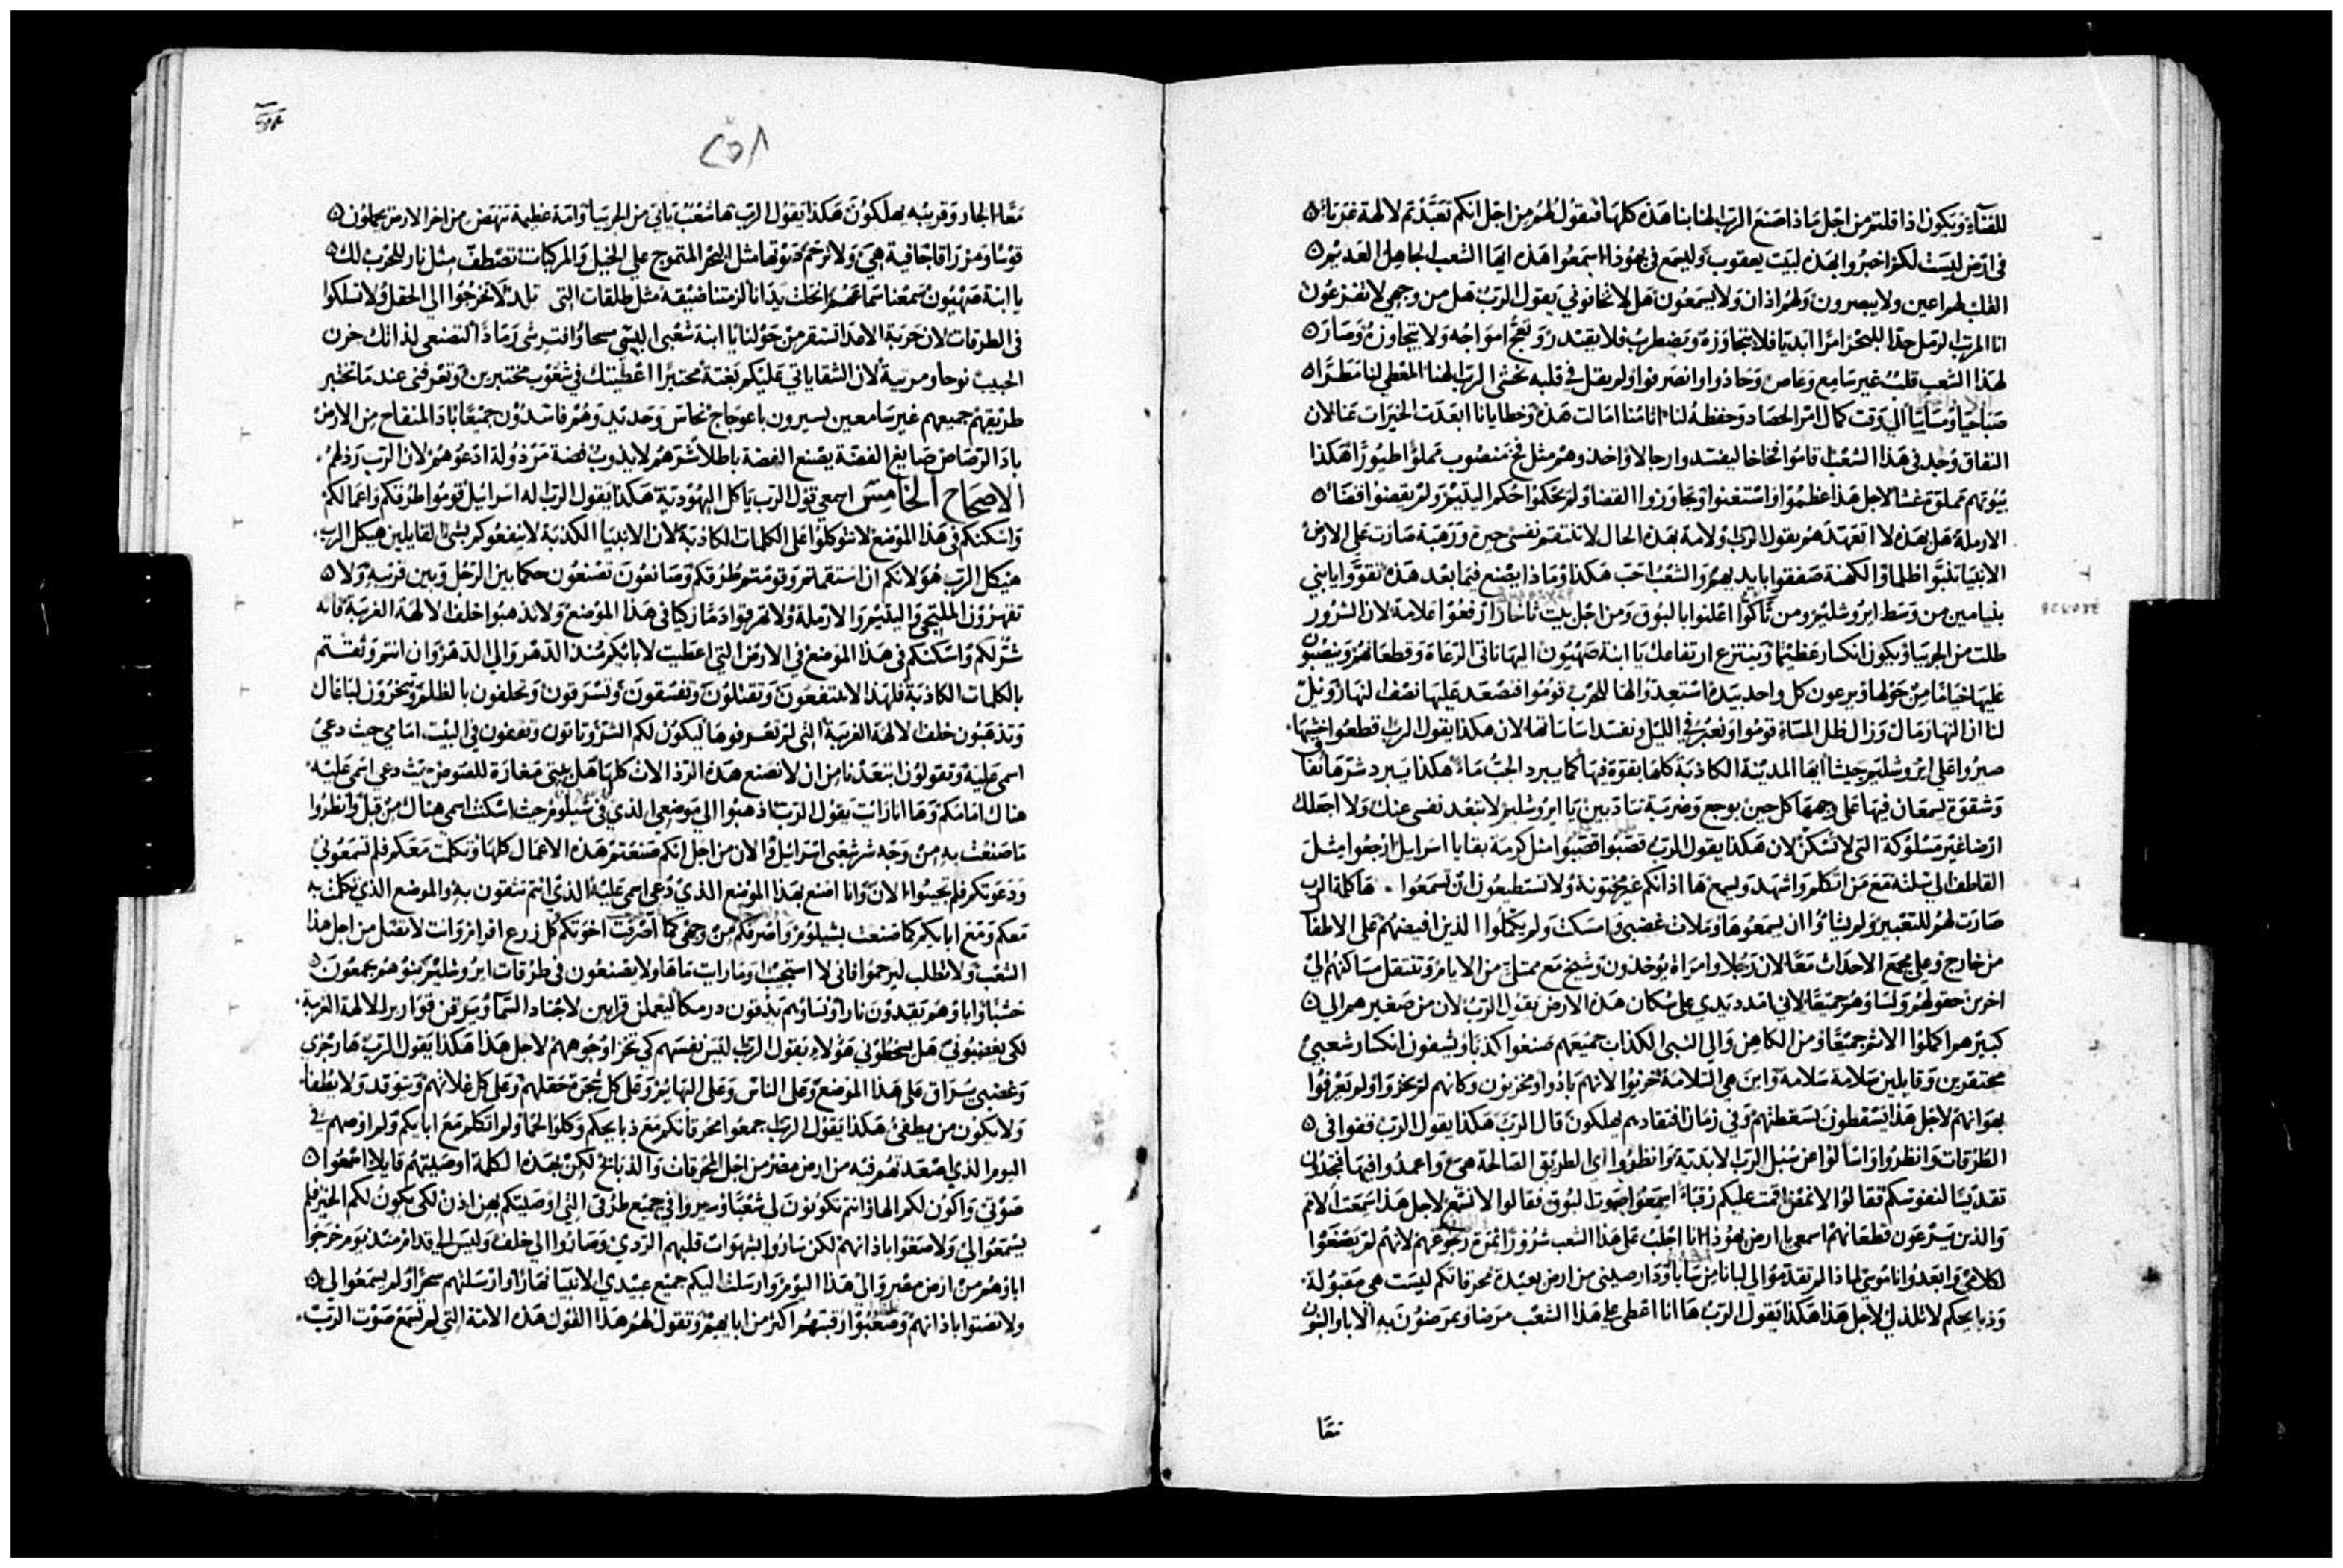 للفنآء ويكون اذا قلتم من اجل ماذا صنع الرب الهنا بنا هذه كلها فتقول لهم من اجل انكم تعبدتم لالهة غربآء
في ارض ليست لكم اخبروا بهذه لبيت يعقوب وليسمع في يهوذا اسمعوا هذه ايها الشعب الجاهل العديم
القلب لهم اعين ولا يبصرون ولهم اذان ولا يسمعون هل لا تخافوني يقول الرب هل من وجهي لا تفزعون
انا المرتب الرمل حدا للبحر امرا ابديا فلا يتجاوزه ويضطرب فلا يقتدر وتعج امواجه ولا يتجاوزه وصار
لهذا الشعب قلب غير سامع وعاص وحادوا وانصرفوا ولم يقل في قلبه نخشى الرب الهنا المعطي لنا مطرا
صباحيا ومسايا الي وقت كمال امر الحصاد وحفظه لنا اثامنا امالت هذه وخطايانا ابعدت الخيرات عنا لان
النفاق وجد في هذا الشعب اقاموا فخاخا ليفسدوا رجالا واخذوهم مثل فخ منصوب مملو طيورا هكذا
بيوتهم مملوة غشا لاجل هذا عظموا واستغنوا وتجاوزوا القضا ولم يحكموا حكم اليتيم ولم يقضوا قضا
الارملة هل بهذه لا اتعهدهم يقول الرب ولامة بهذه الحال لا تنتقم نفسي حيرة ورهبة صارت على الارض
الانبيا تنبوا ظلما والكهنة صفقوا بايديهم والشعب احب هكذا وماذا يصنع فيما بعد هذه تقووا يابني
بنيامين من وسط ايروشليم ومن ثاكوا اعلنوا بالبوق ومن اجل بيت ثاخارا ارفعوا علامة لان الشرور
طلت من الجربيا ويكون انكسار عظيم وينتزع ارتفاعك يا ابنة صهيون اليها تاتي الرعاة وقطعانهم وينصبون
عليها خياما من حولها ويرعون كل واحد بيده استعدوا لها للحرب قوموا فنصعد عليها نصف النهار ويل
لنا ان النهار مال وزال ظل المساء قوموا ونعبر في الليل ونفسد اساساتها لان هكذا يقول الرب قطعوا خشبها
صيروا على ايروشليم جيشا ايها المدينة الكاذبة كلها بقوة فيها كما يبرد الجب ماء هكذا يبرد شرها نفاق
وشقوة يسمعان فيها على وجهها كل حين بوجع وضربة تتادبين يا ايروشليم لا تبعد نفسي عنك ولا اجعلك
ارضا غير مسلوكة التي لا تسكن لان هكذا يقول الرب قصبوا قصبوا مثل كرمة بقايا اسرايل ارجعوا مثل
القاطف الي سلته مع من اتكلم واشهد ويسمع ها اذانكم غير مختونة ولا تستطيعون ان تسمعوا ها كلمة الرب
صارت لهم للتعيير ولم يشاؤا ان يسمعوها وملات غضبي وامسكت ولم يكملوا الذين افيضهم على الاطفال
من خارج وعلى مجمع الاحداث معا لان رجلا وامراة يوخذون وشيخ مع ممتلئ من الايام وتنتقل مساكنهم الي
اخرين حقولهم ونساوهم جميعا لاني امدد يدي على سكان هذه الارض يقول الرب لان من صغيرهم الي
كبيرهم اكملوا الاثم جميعا ومن الكاهن والي النبي الكذاب جميعهم صنعوا كذبا ويشفون انكسار شعبي
محتقرين وقايلين سلامة سلامة واين هي السلامة خزيوا لانهم بادوا ومخزيون وكانهم لم يخزوا ولم يعرفوا
هوانهم لاجل هذا يسقطون بسقطتهم وفي زمان افتقادهم يهلكون قال الرب هكذا يقول الرب قفوا في
الطرقات وانظروا واسالوا عن سبل الرب الابدية وانظروا اي الطريق الصالحة هي واعمدوا فيها فتجدون
تقديسا لنفوسكم فقالوا لا نمض اقمت عليكم رقباء اسمعوا صوت البوق فقالوا لا نسمع لاجل هذا سمعت الامم
والذين يرعون قطعانهم اسمعي يا ارض يهوذا انا اجلب على هذا الشعب شرورا ثمرة رجوعهم لانهم لم يصغوا
لكلامي وابعدوا ناموسي لماذا لم تقدموا لي لبانا من سابا ودارصيني من ارض بعيدة محرقاتكم ليست هي مقبولة
وذبايحكم لا تلذ لي لاجل هذا هكذا يقول الرب ها انا اعطي على هذا الشعب مرضا ويمرضون به الابا والبنون
معًا
٢٥٨
معًا الجار وقريبه يهلكون هكذا يقول الرب ها شعب ياتي من الجربيا وامة عظيمة تنهض من اخر الارض يحملون
قوسا ومزراقا جافية هي ولا ترحم صوتها مثل البحر المتموج على الخيل والمركبات تصطف مثل نار للحرب لك
يا ابنة صهيون سمعنا سماعهم انحلت يدانا لزمتنا ضيقه مثل طلقات التي تلد لا تخرجوا الي الحقل ولا تسلكوا
في الطرقات لان حربة الاعدا تستقر من حولنا يا ابنة شعبي البسي مسحا وافترشي رمادا اصنعي لذاتك حزن
الحبيب نوحا ومرثية لان الشقا ياتي عليكم بغتة مختبرا اعطيتك في شعوب مختبرين وتعرفني عندما تختبر
طريقهم جميعهم غير سامعين يسيرون باعوجاج نحاس وحديد وهم فاسدون جميعا باد المنفاخ من الارض
باد الرصاص صايغ الفضة يصنع الفضة باطلا شرهم لا يذوب فضة مرذولة ادعوهم لان الرب رذلهم
الاصحاح الخامس اسمعي قول الرب يا كل اليهودية هكذا يقول الرب اله اسرائيل قوموا طرقكم واعمالكم
واسكنكم في هذا الموضع لا تتوكلوا على الكلمات الكاذبة لان الانبيا الكذبة لا ينفعوكم بشي القايلين هيكل الرب
هيكل الرب هو لانكم ان استقمتم وقومتم طرقكم وصانعون تصنعون حكما بين الرجل وبين قريبه ولا
تقهرون الملتجي واليتيم والارملة ولا تهرقوا دما زكيا في هذا الموضع ولا تذهبوا خلف الالهة الغريبة فانه
شر لكم واسكنكم في هذا الموضع في الارض التي اعطيت لابائكم منذ الدهر والي الدهر وان انتم وثقتم
بالكلمات الكاذبة فلهذا لا تنتفعون وتقتلون وتفسقون وتسرقون وتحلفون بالظلم وتبخرون لباغال
وتذهبون خلف الالهة الغريبة التي لم تعرفوها ليكون لكم الشر وتاتون وتقفون في البيت امامي حيث دعي
اسمي عليه وتقولون ابتعدنا من ان لا نصنع هذه الرذالات كلها هل بيتي مغارة للصوص حيث دعي اسمي عليه
هناك امامكم وها انا رايت يقول الرب اذهبوا الي موضعي الذي في شيلوم حيث اسكنت اسمي هناك من قبل وانظروا
ما صنعت به من وجه شر شعبي اسرائيل والان من اجل انكم صنعتم هذه الاعمال كلها وتكلمت معكم فلم تسمعوني
ودعوتكم فلم تجيبوا الان وانا اصنع بهذا الموضع الذي دعي اسمي عليه الذي انتم تثقون به والموضع الذي تكلمت به
معكم ومع ابايكم كما صنعت بشيلوم واصرفكم من وجهي كما اصرفت اخوتكم كل زرع افرام وانت لا تصل من اجل هذا
الشعب ولا تطلب ليرحموا فاني لا استجيب وما رايت ماها ولا يصنعون في طرقات ايروشليم بنوهم يجمعون
خشبا واباوهم يقيدون نارا ونساوهم يدقون درمكا ليعملن قرابين لاجناد السما ويتوقن قوارير للالهة الغريبة
لكي يغضبوني هل يسخطوني هولاء يقول الرب اليس نفسهم كي تخزا وجوههم لاجل هذا هكذا يقول الرب ها رجزي
وغضبي يراق على هذا الموضع وعلى الناس وعلى البهائم وعلى كل شجرة حقلهم وعلى كل غلاتهم ويتوقد ولا يطفا
ولا يكون من يطفئ هكذا يقول الرب اجمعوا محرقاتكم مع ذبايحكم وكلوا لحما ولم اتكلم مع ابايكم ولم اوصهم في
اليوم الذي اصعدتهم فيه من ارض مصر من اجل المحرقات والذبائح لكن بهذه الكلمة اوصيتهم قايلا اسمعوا
صوتي واكون لكم الها وانتم تكونون لي شعبا وسيروا في جميع طرقي التي اوصيتكم بهن اذن لكي يكون لكم الخير فلم
يسمعوا لي ولا صغوا باذانهم لكن ساروا بشهوات قلبهم الردي وصاروا الي خلف وليس الي قدام منذ يوم خرجوا
اباوهم من ارض مصر والي هذا اليوم وارسلت اليكم جميع عبيدي الانبيا نهارا وارسلتهم سحرا ولم يسمعوا لي
ولا نصتوا باذانهم وصعبوا رقبتهم اكثر من ابايهم وتقول لهم هذا القول هذه الامة التي لم تسمع صوت الرب